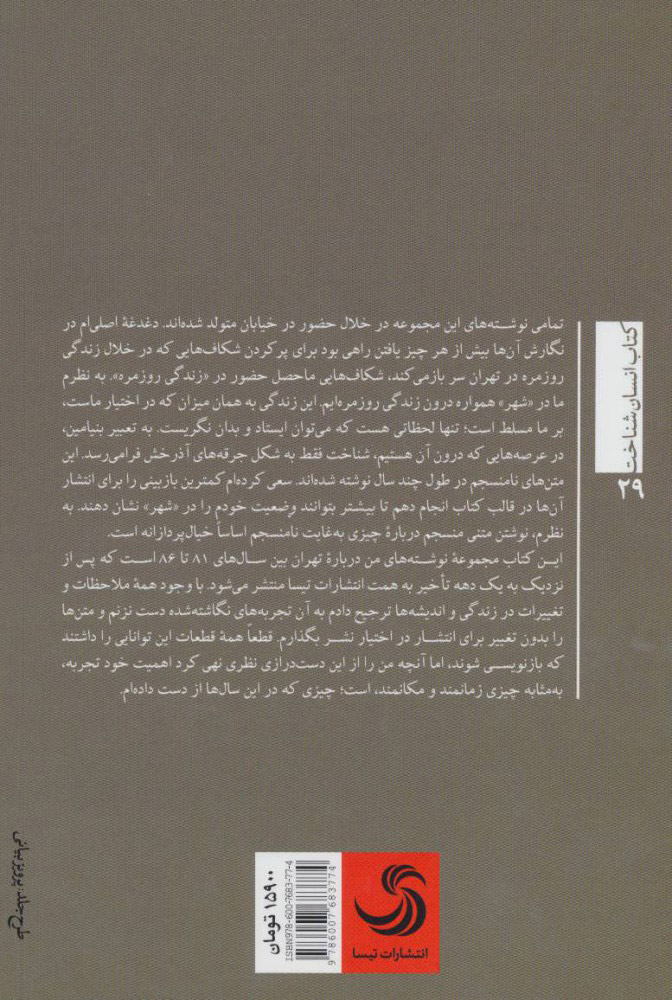 کتاب انسان‌شناخت
۲۹
تمامی نوشته‌های این مجموعه در خلال حضور در خیابان متولد شده‌اند. دغدغهٔ اصلی‌ام در
نگارش آن‌ها بیش از هر چیز یافتن راهی بود برای پرکردن شکاف‌هایی که در خلال زندگی
روزمره در تهران سر بازمی‌کند، شکاف‌هایی ماحصل حضور در «زندگی روزمره». به نظرم
ما در «شهر» همواره درون زندگی روزمره‌ایم. این زندگی به همان میزان که در اختیار ماست،
بر ما مسلط است؛ تنها لحظاتی هست که می‌توان ایستاد و بدان نگریست. به تعبیر بنیامین،
در عرصه‌هایی که درون آن هستیم، شناخت فقط به شکل جرقه‌های آذرخش فرامی‌رسد. این
متن‌های نامنسجم در طول چند سال نوشته شده‌اند. سعی کرده‌ام کمترین بازبینی را برای انتشار
آن‌ها در قالب کتاب انجام دهم تا بیشتر بتوانند وضعیت خودم را در «شهر» نشان دهند. به
نظرم، نوشتن متنی منسجم دربارهٔ چیزی به‌غایت نامنسجم اساساً خیال‌پردازانه است.
این کتاب مجموعهٔ نوشته‌های من دربارهٔ تهران بین سال‌های ۸۱ تا ۸۶ است که پس از
نزدیک به یک دهه تأخیر به همت انتشارات تیسا منتشر می‌شود. با وجود همهٔ ملاحظات و
تغییرات در زندگی و اندیشه‌ها ترجیح دادم به آن تجربه‌های نگاشته‌شده دست نزنم و متن‌ها
را بدون تغییر برای انتشار در اختیار نشر بگذارم. قطعاً همهٔ قطعات این توانایی را داشتند
که بازنویسی شوند، اما آنچه من را از این دست‌درازی نظری نهی کرد اهمیت خود تجربه،
به‌مثابه چیزی زمانمند و مکانمند، است؛ چیزی که در این سال‌ها از دست داده‌ام.
انتشارات تیسا
9 786007 683774
ISBN978-600-7683-77-4
۱۵۹۰۰ تومان
طرح جلد: پرویز بیانی